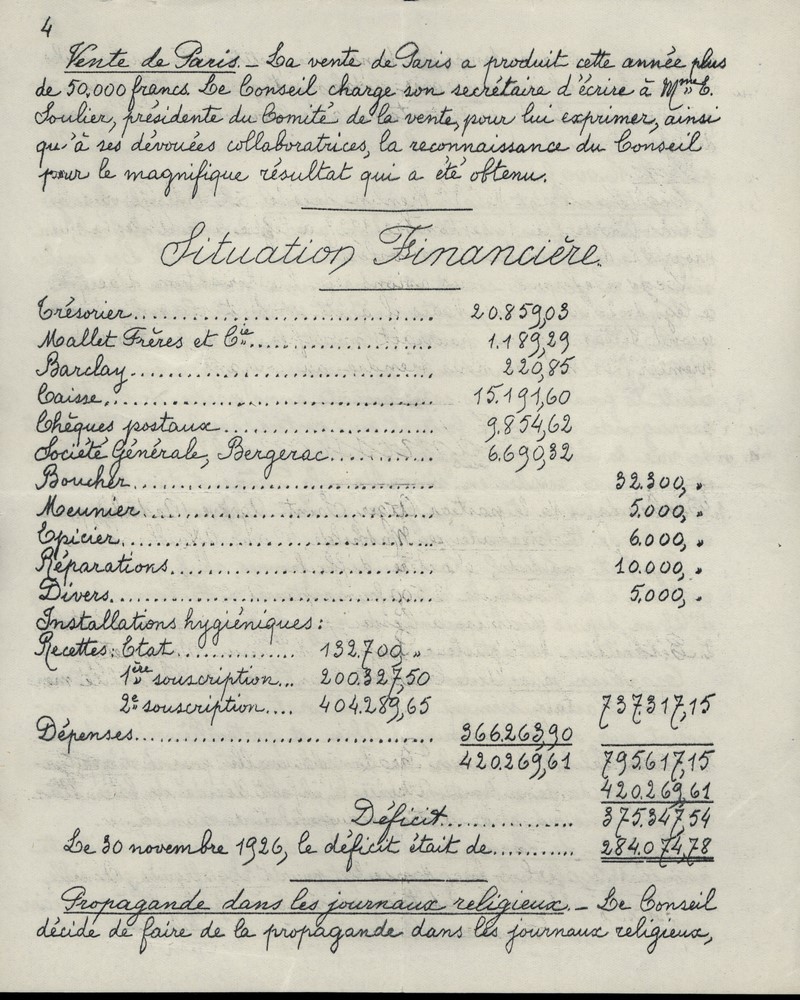 4
Vente de Paris. — La vente de Paris a produit cette année plus
de 50.000 francs. Le Conseil charge son secrétaire d'écrire à Mme E.
Soulier, présidente du Comité de la vente, pour lui exprimer, ainsi
qu'à ses dévouées collaboratrices, la reconnaissance du Conseil
pour le magnifique résultat qui a été obtenu.
Situation Financière.
Trésorier.............................. 20.859,03
Mallet Frères et Cie.................... 1.189,29
Barclay.............................. 220,85
Caisse.............................. 15.191,60
Chèques postaux.................... 9.854,62
Société Générale, Bergerac............ 6.690,32
Boucher.............................. 32.300, "
Meunier.............................. 5.000, "
Epicier.............................. 6.000, "
Réparations.......................... 10.000, "
Divers.............................. 5.000, "
Installations hygiéniques :
Recettes : Etat............... 132.700, "
1ère souscription... 200.327,50
2e souscription.... 404.289,65 737.317,15
Dépenses.............................. 366.263,90
420.269,61 795.617,15
420.269,61
Déficit............... 375.347,54
Le 30 novembre 1926, le déficit était de.......... 284.074,78
Propagande dans les journaux religieux. — Le Conseil
décide de faire de la propagande dans les journaux religieux,